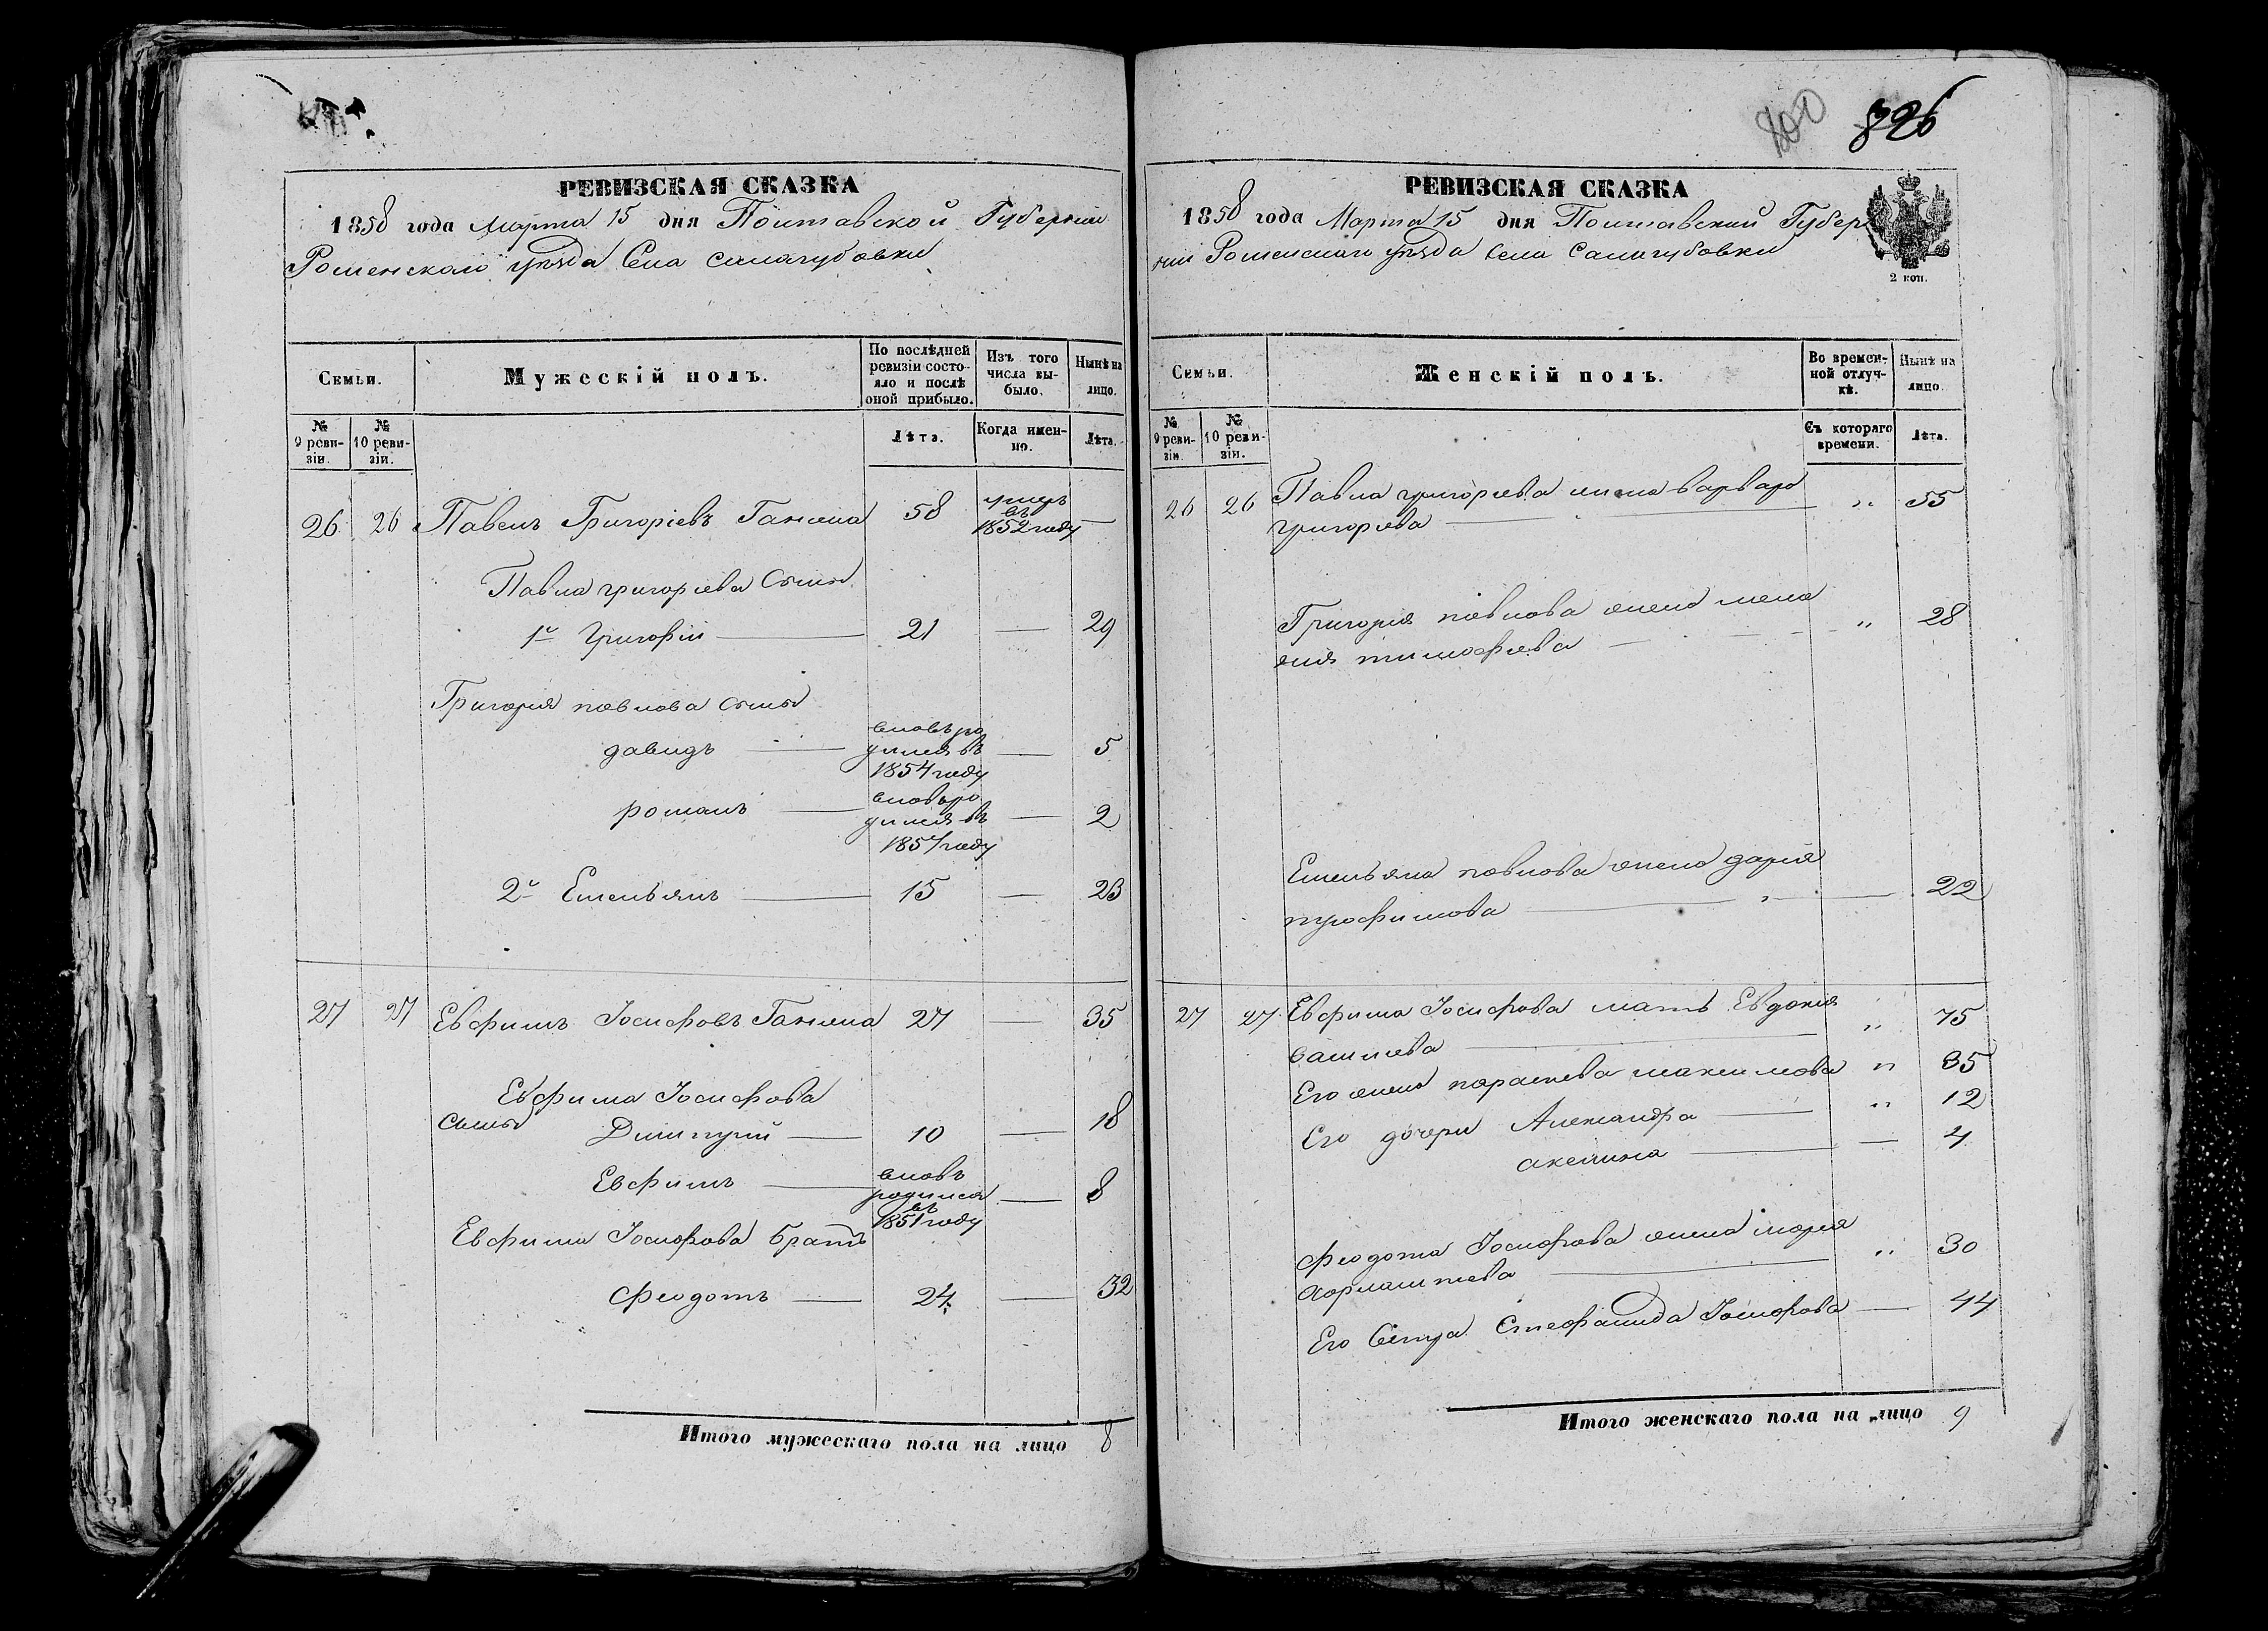 800 826
РЕВИЗСКАЯ СКАЗКА
1858 года Марта 15 дня Полтавской Губерніи
Роменскаго уѣзда Села Салагубовки
Семьи.
Мужескій полъ.
По послѣдней ревизіи состояло и послѣ оной прибыло.
Изъ того числа выбыло.
Нынѣ на лицо.
№ 9 ревизіи.
№ 10 ревизіи.
Лѣта.
Когда именно.
Лѣта.
26 26 Павелъ Григоріевъ Ганжела 58 умеръ въ 1852 году —
Павла григоріева Сыны
1й Григорій — 21 — 29
Григорія павлова сыны
давидъ — вновь родился въ 1854 году — 5
романъ — вновь родился въ 1857 году — 2
2й Емельянъ — 15 — 23
27 27 Евфимъ Іосифовъ Ганжела 27 — 35
Евфима Іосифова
Сыны Димитрій — 10 — 18
Евфимъ — вновь родился въ 1851 году — 8
Евфима Іосифова братъ
Феодотъ — 24 — 32
Итого мужескаго пола на лицо 8
РЕВИЗСКАЯ СКАЗКА
1858 года Марта 15 дня Полтавский Губер
нии Роменскаго уѣзда села Салагубовки
2 коп.
Семьи.
Женскій полъ.
Во временной отлучкѣ.
Нынѣ на лицо.
№ 9 ревизіи.
№ 10 ревизіи.
Съ котораго времени.
Лѣта.
26 26 Павла григоріева жена варвара
григоріева — „ 55
Григорія павлова жена мела
ния тимофіева — „ 28
Емельяна павлова жена дарія
трофимова — „ — 22
27 27 Евфима Іосифова мать Евдокия
василіева — „ 75
Его жена параскева максимова „ 35
Его дочери Александра — „ 12
акелина — — 4
Феодота Іосифова жена марія
— „ 30
Его Сестра Стефанида Іосифова — 44
Итого женскаго пола на лицо 9